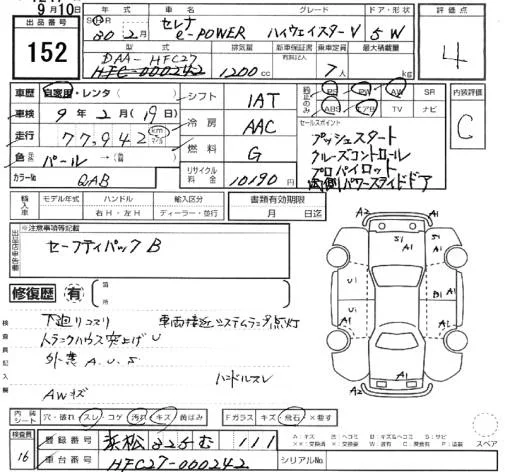 9月10日
出品番号
152
年式
車名
グレード
ドア・形状
評価点
30 2月
セレナ e-POWER
ハイウェイスターV
5W
4
型式
排気量
新車保証書
有無記入
乗車定員
最大積載量
DAA-HFC27
HFC-000242
1200cc
7人
kg
車歴
自家用・レンタ( )
シフト
IAT
純正のみ
PS
PW
AW
SR
ABS
エアB
TV
ナビ
内装評価
C
車検
9年2月(19日)
冷房
AAC
セールスポイント
プッシュスタート
クルーズコントロール
プロパイロット
両側パワースライドドア
走行
77,942
km
マイル
燃料
G
色
パール
カラーNo
QAB
リサイクル料金
10190円
輸入車
モデル年式
ハンドル
輸入区分
右H・左H
ディーラー・並行
書類有効期限
月 日迄
※注意事項等記載
セーフティパックB
修復歴
有
箇所
検査員記入欄
下廻りコスリ
車両接近システムランプ点灯
トランクハウス突上げU
外装 A.U.S
ハンドルスレ
AWキズ
A2
A1
S1
S1
A1
U1
A1
U1
B1
A1
A1
A2
A1
スペア
内装
シート
穴・破れ
スレ・コゲ
汚れ
キズ
黄ばみ
Fガラス
キズ
飛石
×巻す
検査員
16
登録番号
浜松 325 む 111
車台番号
HFC27-000242
シリアルNo